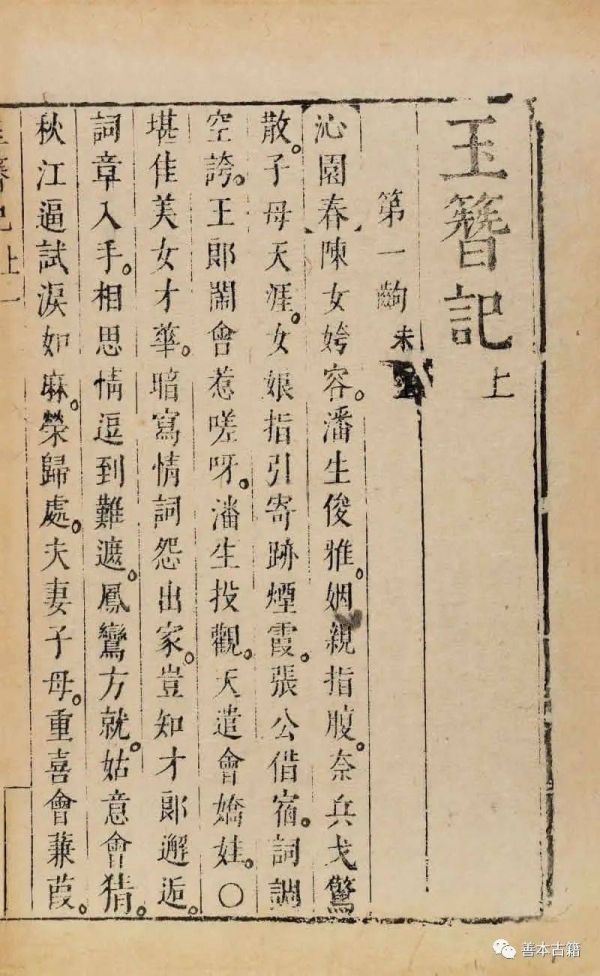 玉簪記 上
第一齣 末
【沁園春】陳女姱容。潘生俊雅。姻親指腹。奈兵戈驚
散。子母天涯。女娘指引寄跡煙霞。張公借宿。詞調
空誇。王郎鬧會惹嗟呀。潘生投觀。天遣會嬌娃。○
堪佳美女才華。暗寫情詞怨出家。豈知才郎邂逅。
詞章入手。相思情逗到難遮。鳳鸞方就。姑意會猜。
秋江逼試淚如麻。榮歸處。夫妻子母。重喜會蒹葭。
玉簪記上 一
善本古籍